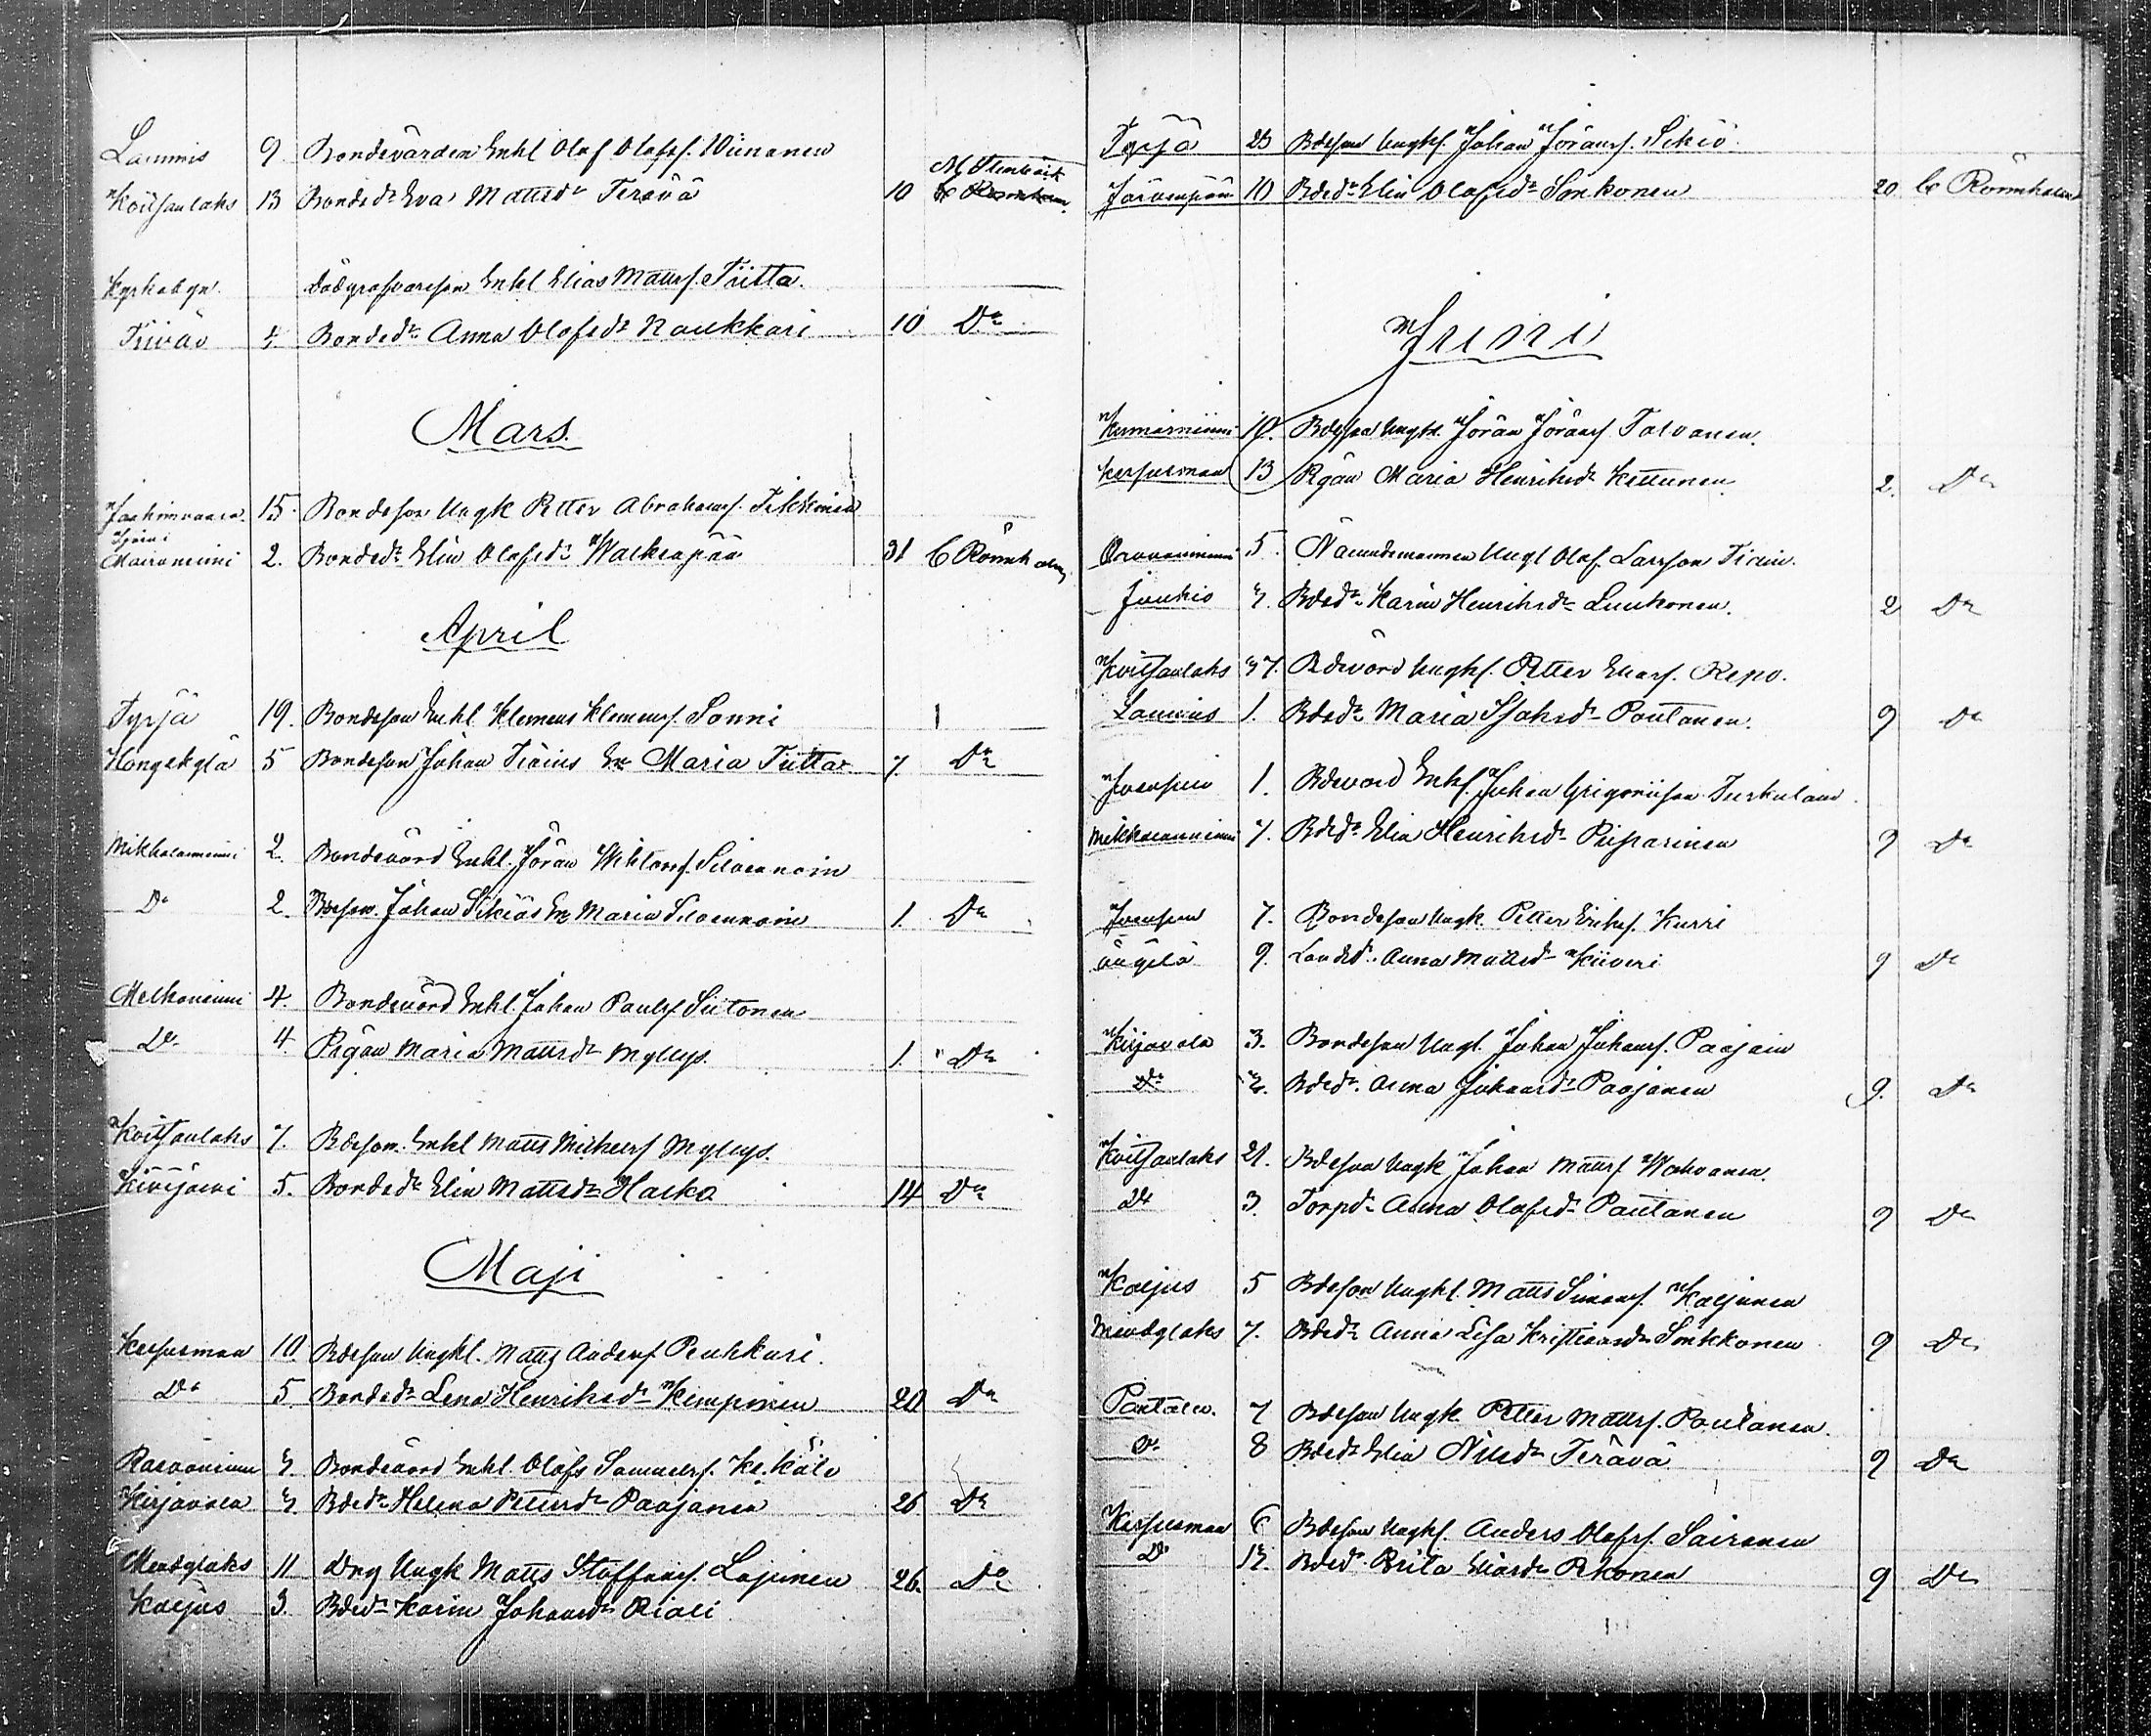 Lammis 9 Bondevärden Enkl Olof Olofss. Wiinanen
Koitsanlaks 13 Bonded:r Eva Mattsd:r Terävä 10 M. Stenbäck
Kyrkobyn Enkl Elias Mattss. Tiitta.
Bonded:r Anna Olofsd:r Naukkari 10 D:o
Mars.
15. Bondeson Ungk Petter Abrahamss.
2. Bonded:r Elin Olofsd:r 31 C Rönnholm
April
Tyrjä 19. Bondeson Enkl. Klemens Klemenss. Sonni
Kongekylä 5 Bondeson Johan Enk Maria Tiitta 7. D:o
Mikkolanniemi 2. Bondevärd Enkl. Jöran Silvennoin
D:o 2. Bdeson. Johan Sikiös Enk Maria Silvennoin 1. D:o
Melkoniemi 4. Bondevärd Enkl. Johan Paulss. Siitonen
D:o 4. Pigan Maria Mattsd:r Myllys. 1. D:o
Koitsanlaks 7. Bdeson. Enkl Matts Michelss Myllys.
Kivijärvi 5. Bonded:r Elin Mattsd:r Harko 14 D:o
Maji
Kesusmaa 10 Bdeson Ungkl. Matts Anderss Peuhkuri.
D:o 5. Bonded:r Lena Henriksd:r Kemppinen 20 D:o
Bondevärd Enkl. Olofs Samuelss. Kekäle
Kirjavala Bded:r Helena Pettersd:r Paajanen 26 D:o
Mendylaks 11 Drg Ungk Matts Staffanss. Lajunen 26. D:o
Kaljus 3. Bded:r Karin Johansd:r Riali
Tyrjä 23 Bdeson Ungkl. Johan Jöranss. Sikiö
Järvenpää 10 Bded:r Elin Olofsd:r Sinkonen 20. C Rönnholm
Juni
Bdeson Ungkl. Jöran Jöranss Talvanen.
Kesusmaa 13 Pigan Maria Henriksd:r Kettunen 2. D:o
5. Nämndemannen Ungk Olof Larsson
Joukio Bded:r Karin Henriksd:r Luukonen. 2 D:o
Koitsanlaks 37. Bdevärd Ungkl. Petter Eliass. Repo.
Lammis 1. Bded:r Maria Isaksd:r Poutanen. 9 D:o
Joensuu 1. Bdevärd Enkl. Johan Grigoriison
Mikkolanniemi 7. Bded:r Elin Henriksd:r Piiparinen 9 D:o
Joensuu 7. Bondeson Ungk. Petter Erikss. Kurri
Ängelä 9. Anna Mattsd:r Kiiveri 9 D:o
Kirjavala 3. Bondeson Ungl. Johan Johanss. Paajain
D:o Bded:r Anna Johansd:r Paajanen 9. D:o
Koitsanlaks 21. Bdeson Ungk Johan Mattss Wahvanen.
D:o 3. Torpd:r Anna Olofsd:r Pautanen 9 D:o
Kaljus 5 Bdeson Ungkl. Matts Simonss. Kaljunen
Mendylaks 7. Bded:r Anna Lisa Kristiansd:r Sinkkonen 9 D:o
7 Bdeson Ungk. Petter Mattss. Poutanen.
D:o 8 Bded:r Elin Nilsd:r Terävä 9 D:o
Kesusmaa 6 Bdeson Ungkl. Anders Olofss. Sairanen
D:o Bded:r Brita Eliasd:r Pekonen 9 D:o